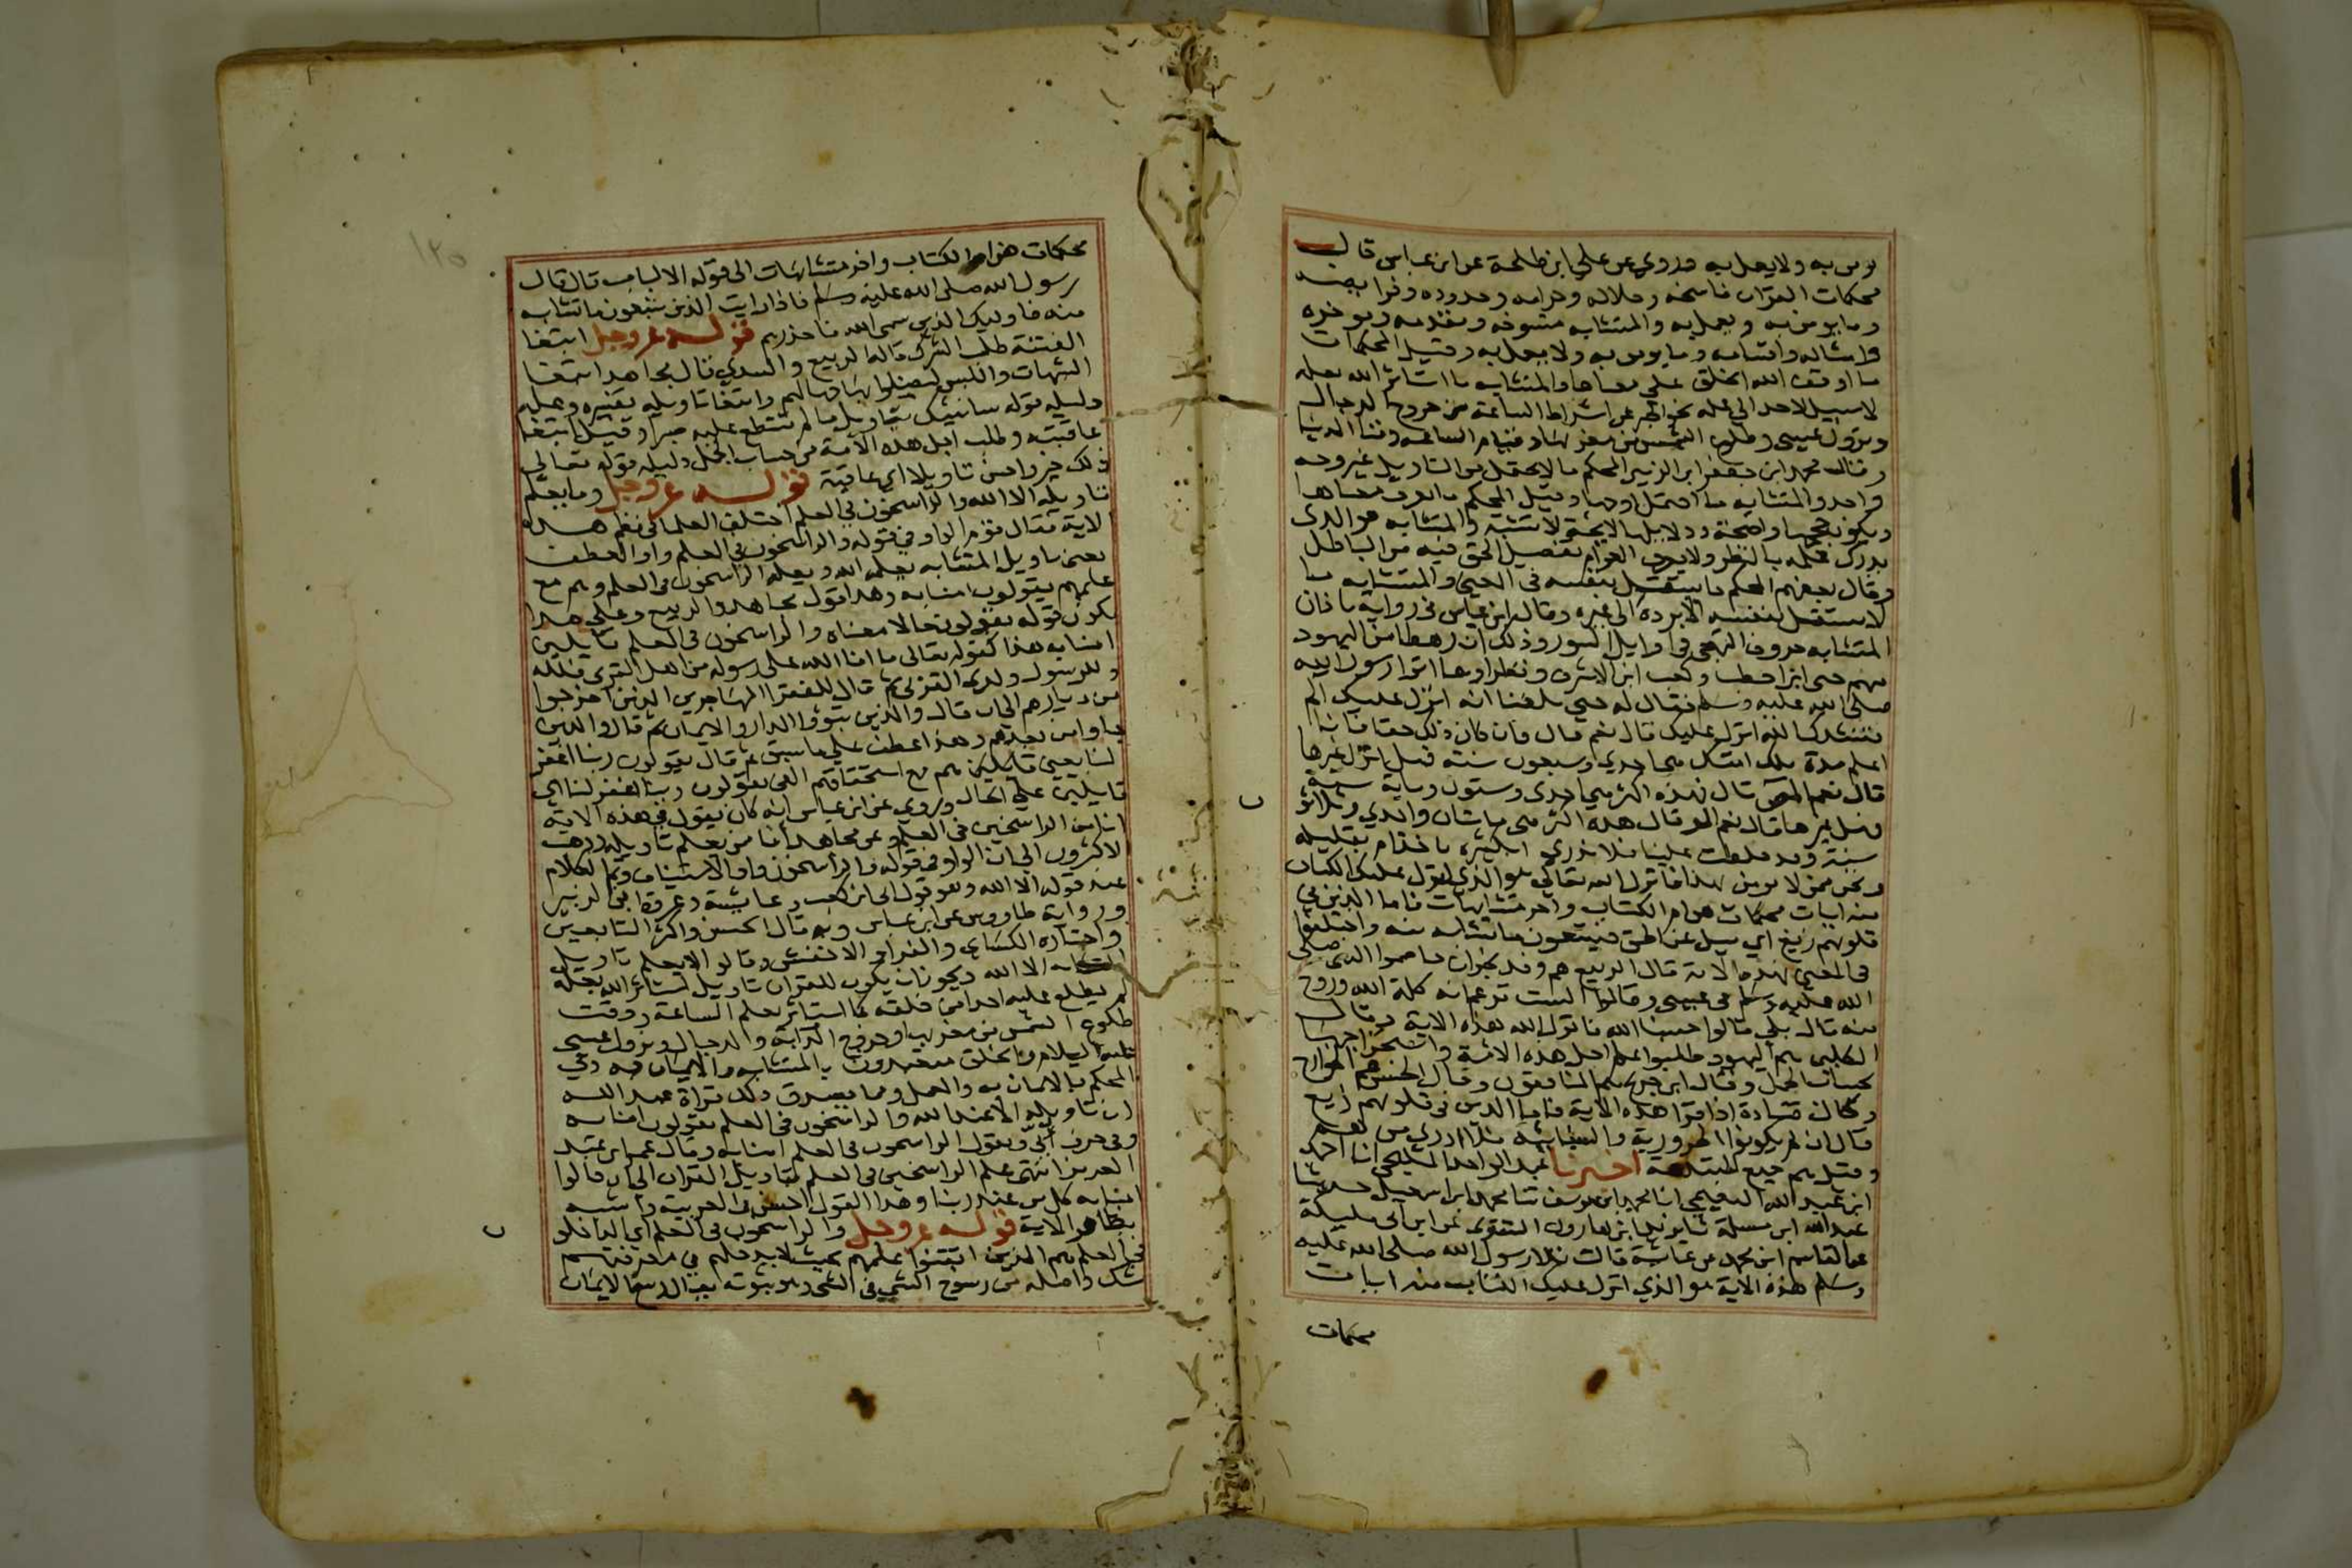 يومن به ولا يعمل به وروي عن علي ابن طلحة عن ابن عباس قال
محكمات القران ناسخه وحلاله وحرامه وحدوده وفرايضه
وما يومن به ويعمل به والمتشابه منسوخه ومقدمه وموخره
وامثاله واقسامه وما يومن به ولا يعمل به وقيل المحكمات
ما اوقف الله الخلق على معناها والمتشابه ما استاثر الله بعلمه
لا سبيل لاحد الى علمه نحو الخبر عن اشراط الساعة من خروج الدجال
ونزول عيسى وطلوع الشمس من مغربها وقيام الساعه وفنا الدنيا
وقال محمد ابن جعفر ابن الزبير المحكم ما لا يحتمل من التاويل غير وجه
واحد والمتشابه ما احتمل اوجها وقيل المحكم ما يعرف معناها
ويكون حججها واضحة ودلايلها لايحة لا تشتبه والمتشابه هو الذى
يدرك علمه بالنظر ولا يعرف العوام تفصيل الحق فيه من الباطل
وقال بعضهم المحكم ما يستقل بنفسه في المعنى والمتشابه ما
لا يستقل بنفسه الا برده الى غيره وقال ابن عباس في رواية باذان
المتشابه حروف التهجي في اوايل السور وذلك ان رهطا من اليهود
منهم حيى ابن اخطب وكعب ابن الاشرف ونظراوهما اتوا رسول الله
صلى الله عليه وسلم فقال له حيي بلغنا انه انزل عليك الم
فننشدك الله انزل عليك قال نعم قال فان كان ذلك حقا فانى
اعلم مدة ملك امتك هي احدي وسبعون سنة فهل انزل غيرها
قال نعم المص قال فهذه اكثر هي احدى وستون وماية سنة
فهل غيرها قال نعم الر قال هذه اكثر هي مايتان واحدي وثلاثون
سنة وقد خلطت علينا فلا ندري ابكثيره ناخذ ام بقليله
ونحن ممن لا يومن بهذا فانزل الله تعالي هو الذي انزل عليك الكتاب
منه ايات محكمات هن ام الكتاب واخر متشابهات فاما الذين في
قلوبهم زيغ اي ميل عن الحق فيتبعون ما تشابه منه واختلفوا
في المعنى بهذه الاية قال الربيع هم وفد نجران خاصموا النبى صلى
الله عليه وسلم في عيسى وقالوا الست تزعم انه كلمة الله وروح
منه قال بلى قالوا حسبنا الله فانزل الله هذه الاية وقال
الكلبي هم اليهود طلبوا علم اجل هذه الامة واستخراجها
بحساب الجمل وقال ابن جريج هم المنافقون وقال الحسن هم الخوارج
وكان قتادة اذا قرا هذه الاية فاما الذين في قلوبهم زيغ
قال ان لم يكونوا الحرورية والسبائية فلا ادري من هم
وقيل هم جميع المبتدعة اخبرنا عبد الواحد المليحي انا احمد
ابن عبد الله النعيمي انا محمد ابن يوسف ثنا محمد ابن اسمعيل حدثنا
عبد الله ابن مسلمة ثنا يزيد ابن ابراهيم التستري عن ابن ابي مليكة
عن القاسم ابن محمد عن عايشة قالت تلا رسول الله صلى الله عليه
وسلم هذه الاية هو الذي انزل عليك الكتاب منه ايات
محكمات
١٢٥
محكمات هن ام الكتاب واخر متشابهات الى قوله الالباب قال قال
رسول الله صلى الله عليه وسلم فاذا رايت الذين يتبعون ما تشابه
منه فاوليك الذين سمى الله فاحذرهم قوله عز وجل ابتغا
الفتنة طلب الشرك قاله الربيع والسدي قال مجاهد ابتغا
الشبهات واللبس ليضلوا بها جهالهم وابتغا تاويله تفسيره وعلمه
دليله قوله سانبيك بتاويل ما لم تستطع عليه صبرا وقيل ابتغا
عاقبته وطلب اجل هذه الامة من حساب الجمل دليله قوله تعالى
ذلك خير واحسن تاويلا اي عاقبة قوله عز وجل وما يعلم
تاويله الا الله والراسخون في العلم اختلف العلما في نظم هذه
الاية فقال قوم الواو في قوله والراسخون في العلم واو العطف
يعنى تاويل المتشابه يعلمه الله ويعلمه الراسخون في العلم وهم مع
علمهم يقولون امنا به وهذا قول مجاهد والربيع وعلى هذا
يكون قوله يقولون حالا معناه والراسخون في العلم قايلين
امنا به هذا كقوله تعالى ما افا الله على رسوله من اهل القرى فلله
وللرسول ولذى القربى ثم قال للفقرا المهاجرين الذين اخرجوا
من ديارهم الى ان قال والذين تبوؤا الدار والايمان ثم قال والذين
جاوا من بعدهم وهذا عطف على ما سبق ثم قال يقولون ربنا اغفر
لنا يعني قايلين هم مع استحقاقهم الفى يقولون ربنا اغفر لنا اي
قايلين على الحال وروي عن ابن عباس انه كان يقول في هذه الاية
انا من الراسخين في العلم وعن مجاهد انا ممن يعلم تاويله وذهب
الاكثرون الى ان الواو في قوله والراسخون واو الاستيناف وتم الكلام
عند قوله الا الله وهو قول ابى ابن كعب وعايشة وعروة ابن الزبير
ورواية طاووس عن ابن عباس وبه قال الحسن واكثر التابعين
واختاره الكساي والفرا والاخفش وقالوا لا يعلم تاويل
المتشابه الا الله ويجوز ان يكون للقران تاويل استاثر الله بعلمه
لم يطلع عليه احدا من خلقه كما استاثر بعلم الساعة ووقت
طلوع الشمس من مغربها وخروج الدابة والدجال ونزول عيسى
عليه السلام والخلق متعبدون بالمتشابه والايمان به وفي
المحكم بالايمان به والعمل ومما يصدق ذلك قراة عبد الله
ان تاويله الا عند الله والراسخون في العلم يقولون امنا به
وفي حرف ابي ويقول الراسخون في العلم امنا به وقال عمر ابن عبد
العزيز انتهى علم الراسخين في العلم بتاويل القران الى ان قالوا
امنا به كل من عند ربنا وهذا القول احسن في العربية واشبه
بظاهر الاية قوله عز وجل والراسخون في العلم اي الداخلون
في العلم هم الذين اتقنوا علمهم بحيث لا يدخلهم في معرفتهم
شك واصله من رسوخ الشي في الشي وهو ثبوته يقال رسخ الايمان